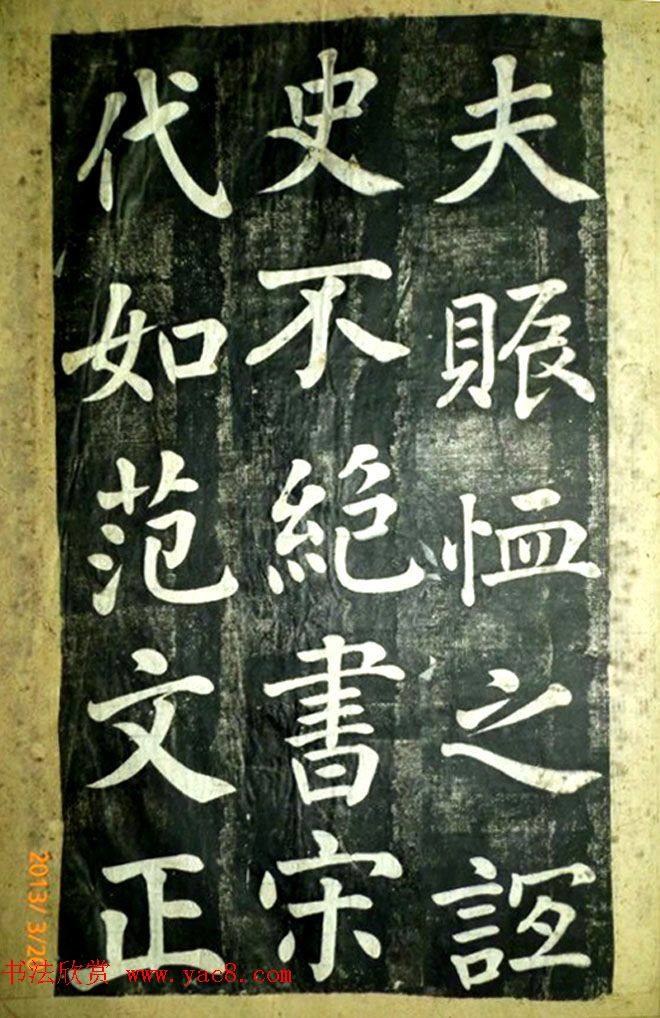 夫賑恤之詔
史不絕書宋
代如范文正
2013/3/2
书法欣赏 www.yac8.com